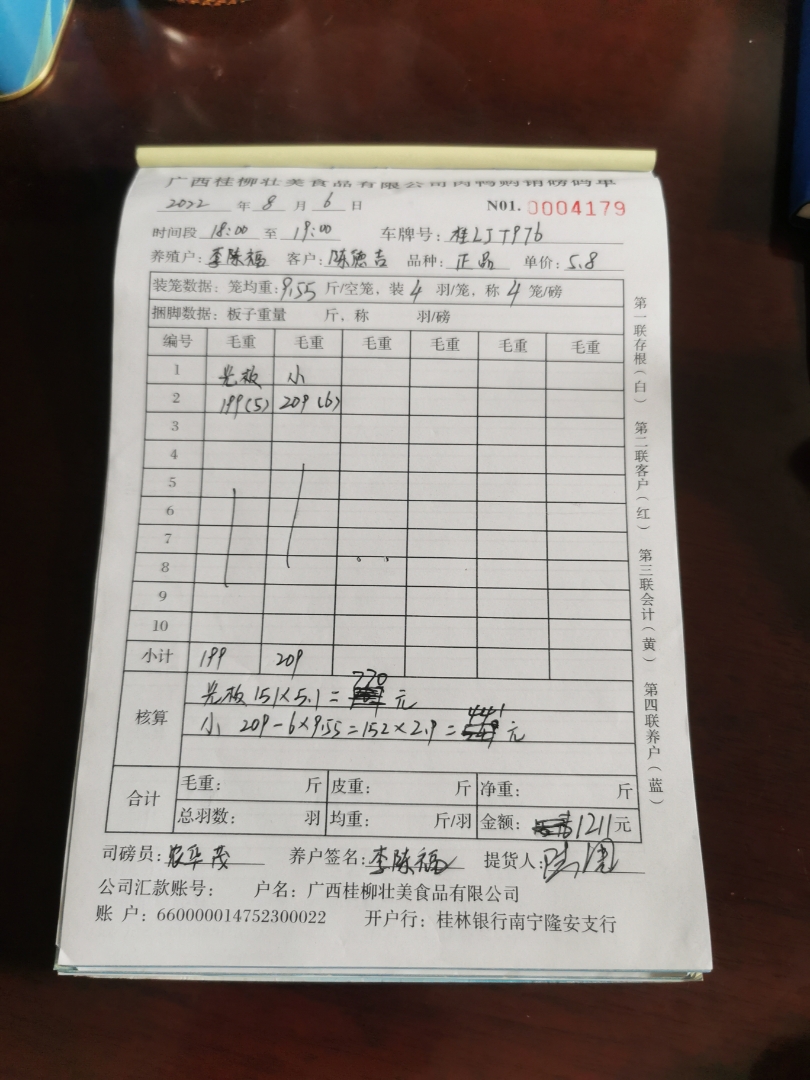 广西桂柳壮美食品有限公司肉鸭购销磅码单
2022 年 8 月 6 日 N01. 0004179
时间段 18:00 至 19:00 车牌号: 桂LJT976
养殖户: 李陈福 客户: 陈德吉 品种: 正品 单价: 5.8
装笼数据: 笼均重: 9.55 斤/空笼, 装 4 羽/笼, 称 4 笼/磅
捆脚数据: 板子重量 斤, 称 羽/磅
编号 毛重 毛重 毛重 毛重 毛重 毛重
1 光板 小
2 199(5) 209(6)
3
4
5
6
7
8
9
10
小计 199 209
核算
光板 151×5.1= 770 元
小 209-6×9.55=152×2.9= 441 元
合计
毛重: 斤 皮重: 斤 净重: 斤
总羽数: 羽 均重: 斤/羽 金额: 1211元
司磅员: 农华茂 养户签名: 李陈福 提货人:
公司汇款账号: 户名: 广西桂柳壮美食品有限公司
账 户: 660000014752300022 开户行: 桂林银行南宁隆安支行
第一联存根(白) 第二联客户(红) 第三联会计(黄) 第四联养户(蓝)